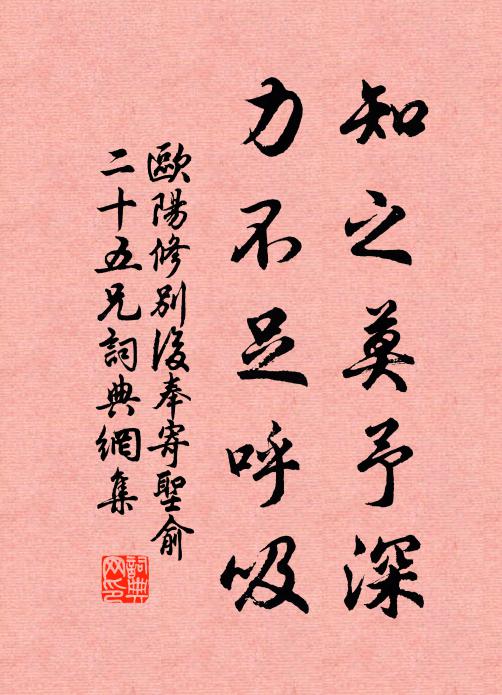 知之莫予深
力不足呼吸
歐陽修別後奉寄聖俞
二十五兄詞典網集
詞典网印